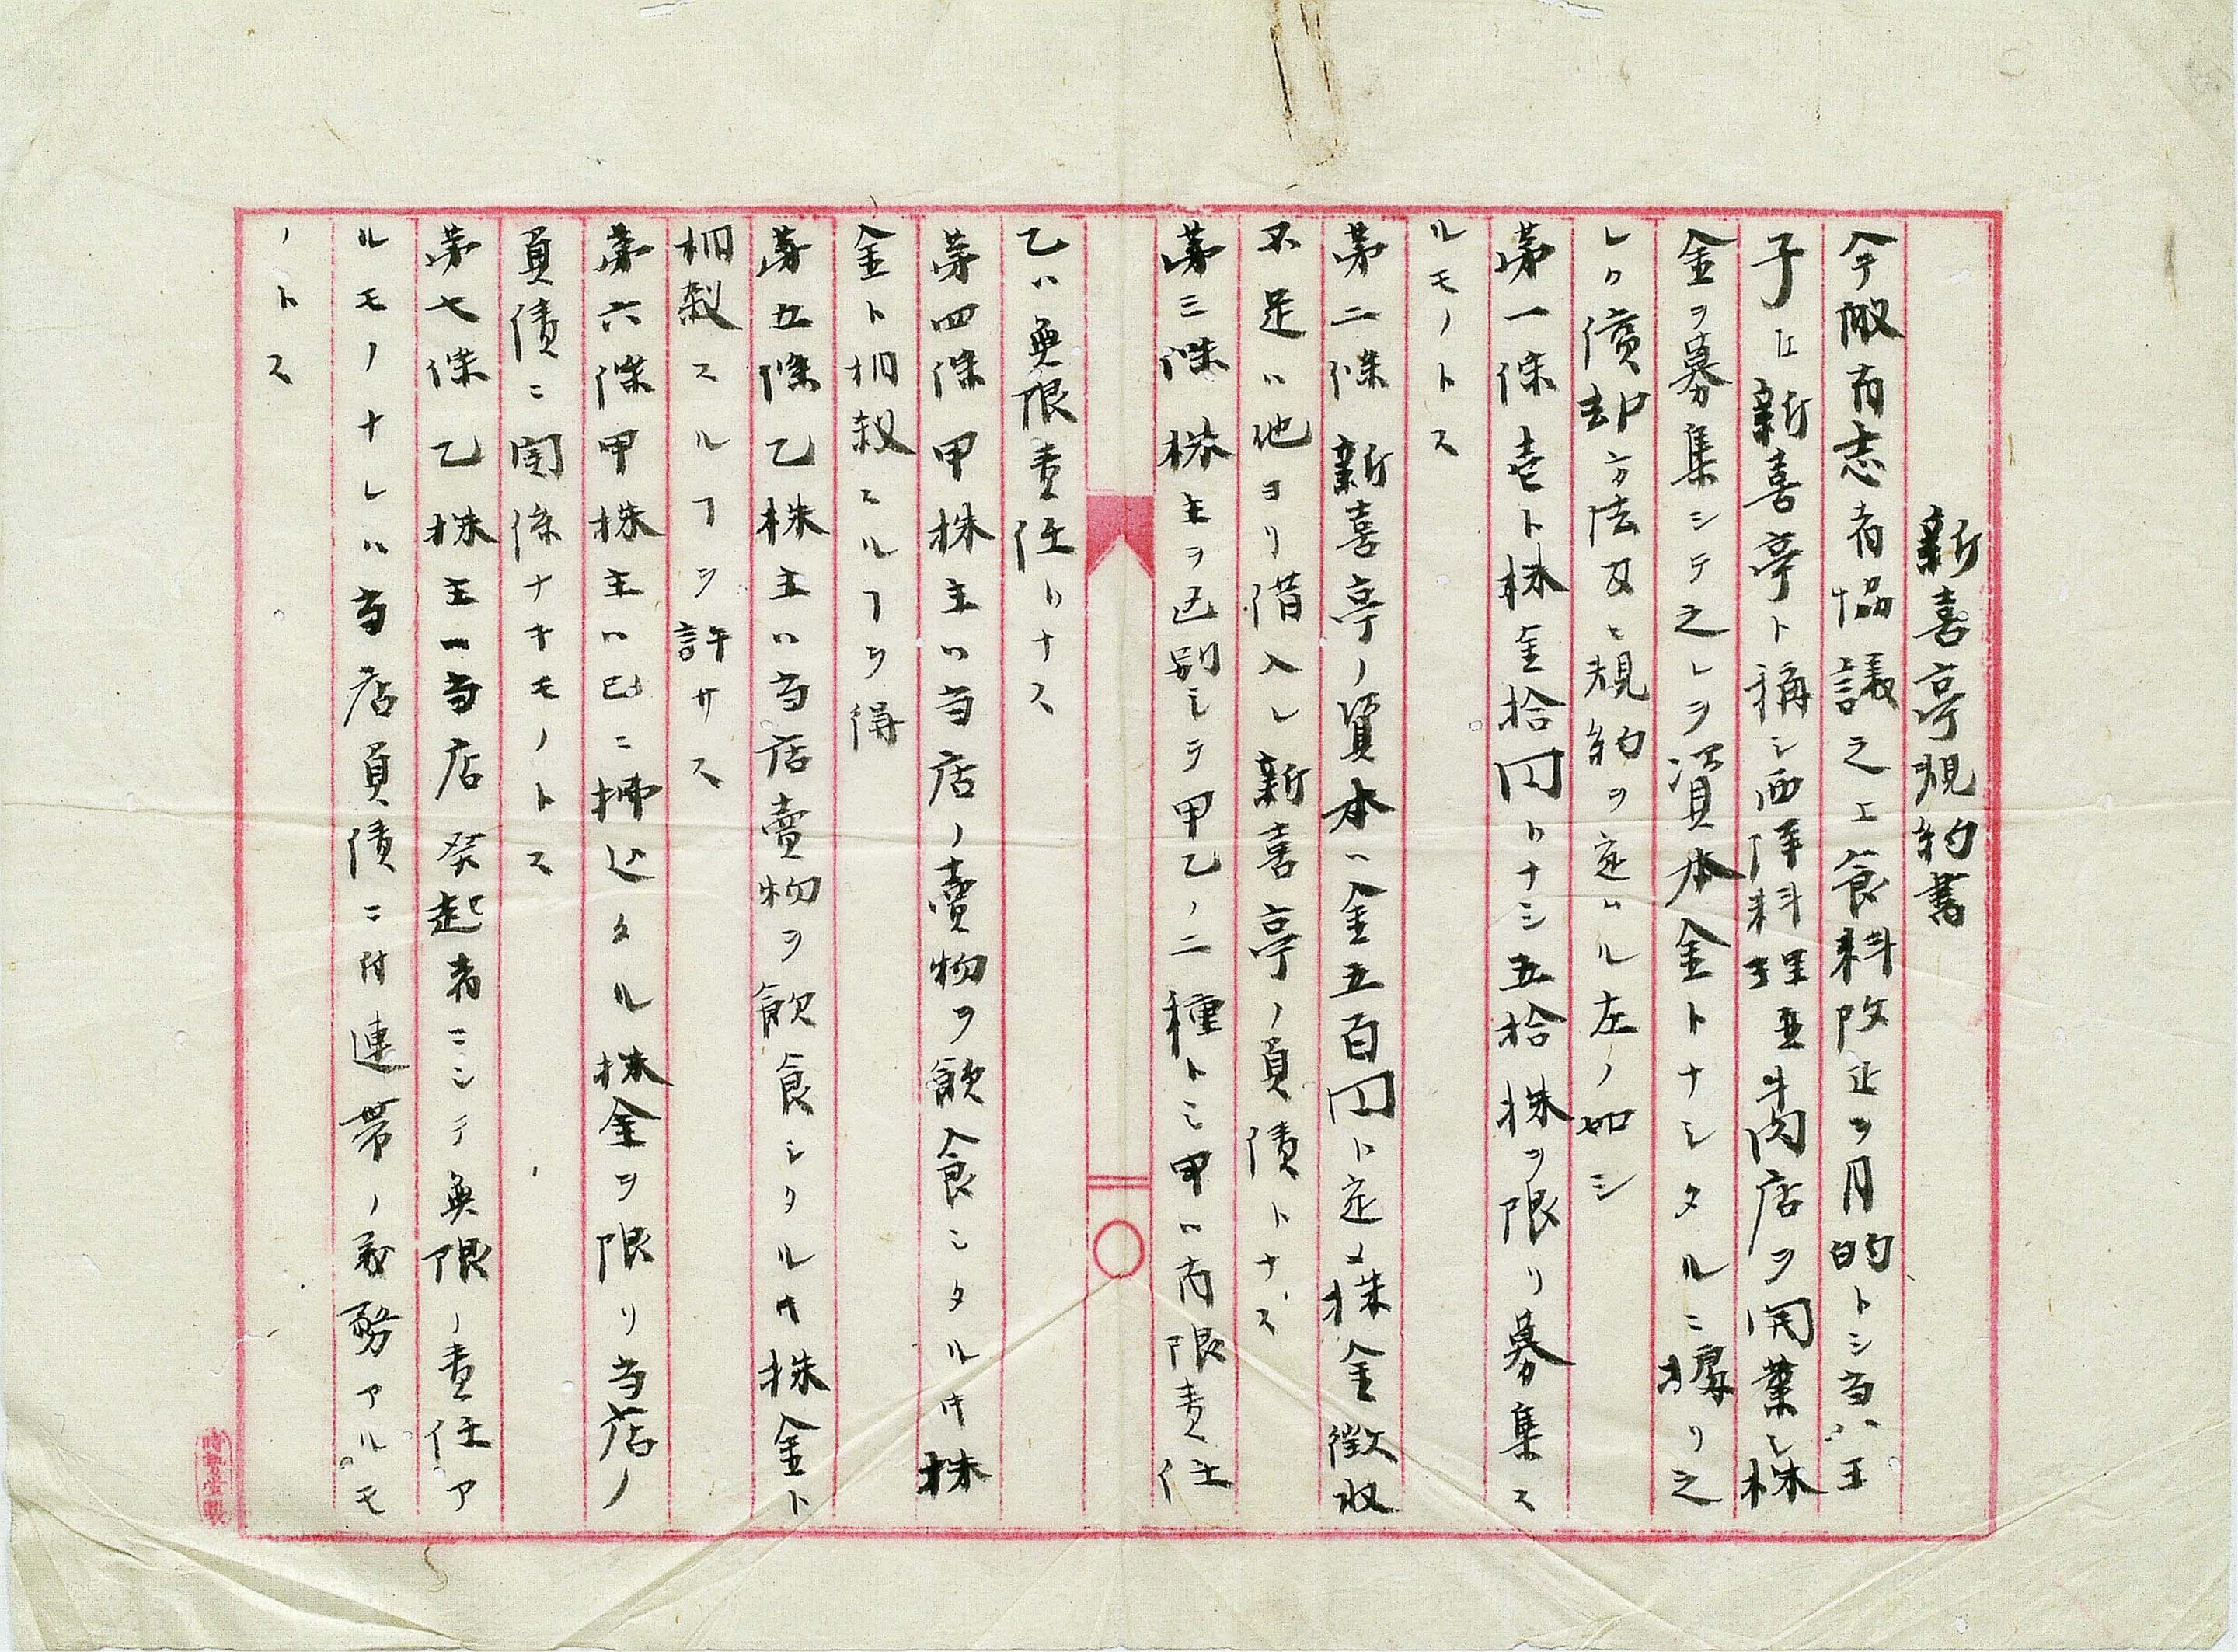 新喜亭規約書
今般有志者協議之上食料改正ヲ目的トシ当八王
子ヱ新喜亭ト称シ西洋料理並牛肉店ヲ開業シ株
金ヲ募集シテ之レヲ資本金トナシタルニ據リ之
レカ償却方法及ヒ規約ヲ定ムル左ノ如シ
第一條壱ト株金拾円トナシ五拾株ヲ限リ募集ス
ルモノトス
第二條新喜亭ノ資本ハ金五百円ト定メ株金徴収
不足ハ他ヨリ借入レ新喜亭ノ負債トナス
第三條株主ヲ区別シテ甲乙ノ二種トシ甲ハ有限責任
乙ハ無限責任トナス
第四條甲株主ハ当店ノ賣物ヲ飲食シタルキ株
金ト相殺スルヿヲ得
第五條乙株主ハ当店賣物ヲ飲食シタルキ株金ト
相殺スルヿヲ許サス
第六條甲株主ハ已ニ拂込タル株金ヲ限リ当店ノ
負債ニ関係ナキモノトス
第七條乙株主ハ当店発起者ニシテ無限ノ責任ア
ルモノナレハ当店負債ニ付連帯ノ義務アルモ
ノトス